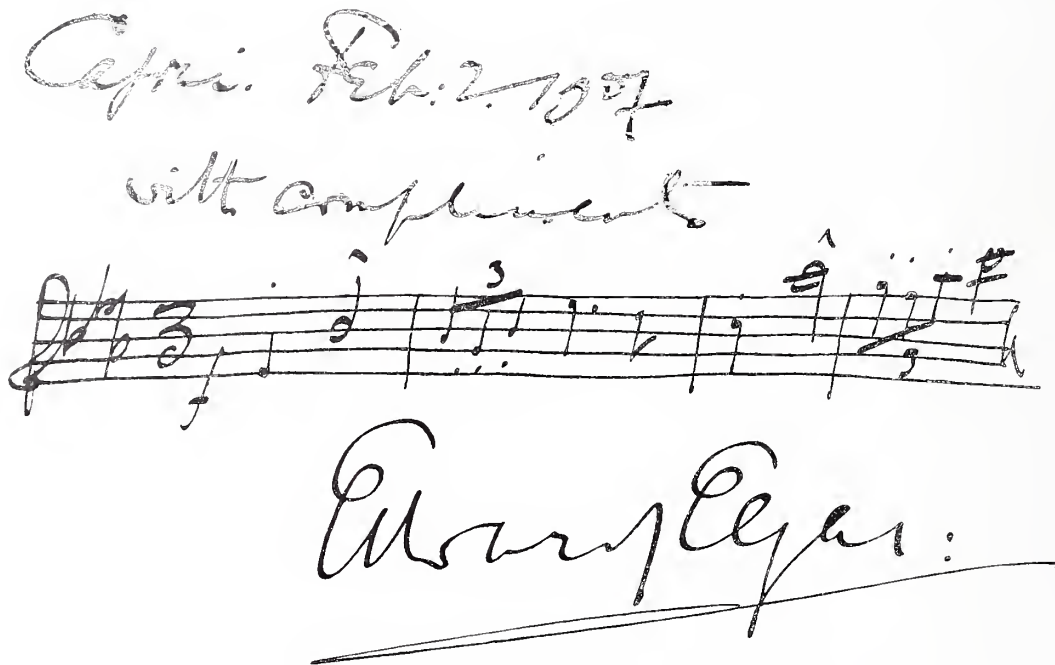 Capri. Feb: 2. 1907
with compliments
3
3
f
Edward Elgar: